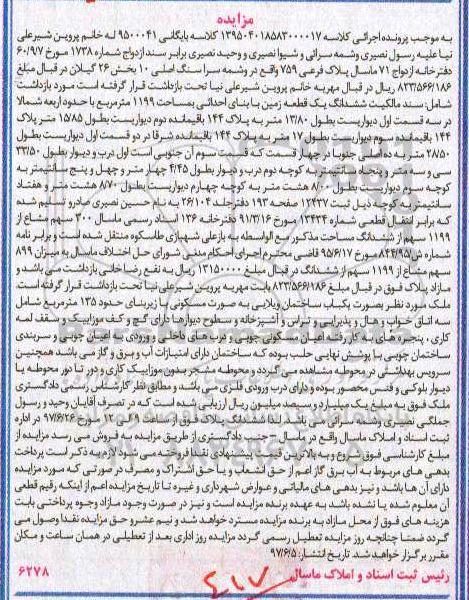 مزایده
به موجب پرونده اجرائی کلاسه ۱۳۹۵۰۴۰۱۸۵۸۳۰۰۰۰۱۷ کلاسه بایگانی ۹۵۰۰۰۴۱ له خانم پروین شیرعلی
نیا علیه رسول نصیری وشمه سرائی و شیوا نصیری و وحید نصیری برابر سند ازدواج شماره ۱۷۳۸ مورخ ۶۰/۹/۷
دفترخانه ازدواج ۷۱ ماسال پلاک فرعی ۷۵۹ واقع در وشمه سرا سنگ اصلی ۱۰ بخش ۲۶ گیلان در قبال مبلغ
۸۲۳/۵۶۶/۱۸۶ ریال در قبال مهریه خانم پروین شیرعلی نیا تحت بازداشت قرار گرفته است مورد بازداشت
شامل: سند مالکیت ششدانگ یک قطعه زمین با بنای احداثی بمساحت ۱۱۹۹ مترمربع با حدود اربعه شمالا
در سه قسمت اول دیواریست بطول ۱۳/۸۰ متر به پلاک ۱۴۴ باقیمانده دوم دیواریست بطول ۱۵/۸۵ متر پلاک
۱۴۴ باقیمانده سوم دیواریست بطول ۱۷ متر به پلاک ۱۴۴ باقیمانده شرقا در دو قسمت اول دیواریست بطول
۲۸/۵۰ متر به ده اصلی جنوبا در چهار قسمت که قسمت سوم آن جنوبی است اول درب و دیوار بطول ۳۳/۵۰
سی و سه متر و پنجاه سانتیمتر به کوچه دوم درب و دیوار بطول ۴/۴۵ چهار متر و چهل و پنج سانتیمتر به
کوچه سوم دیواریست بطول ۸/۰۰ هشت متر به کوچه چهارم دیواریست بطول ۸/۷۰ هشت متر و هفتاد
سانتیمتر به کوچه ذیل ثبت ۱۲۴۳۷ صفحه ۱۹۳ دفتر جلد ۲۶/۱۰۴ به نام حسین نصیری صادر و تسلیم شده
که برابر انتقال قطعی شماره ۱۳۴۳۴ مورخ ۹۱/۳/۱۶ دفترخانه ۱۳۶ اسناد رسمی ماسال ۳۰۰ سهم مشاع از
۱۱۹۹ سهم از ششدانگ مساحت مذکور مع الواسطه به بازعلی شهبازی طاسکوه منتقل شده است و برابر نامه
شماره ش ۸۴۴/۹۵ مورخ ۹۵/۶/۱۷ قاضی محترم اجرای احکام مدنی شورای حل اختلاف ماسال به میزان ۸۹۹
سهم مشاع از ۱۱۹۹ سهم از ششدانگ در قبال مبلغ ۱۳۱۵۰۰۰۰ ریال به نفع رضا خانی بازداشت می باشد و
مازاد پلاک فوق در قبال مبلغ ۸۲۳/۵۶۶/۱۸۶ بابت مهریه پروین شیرعلی نیا تحت بازداشت قرار گرفته است.
ملک مورد نظر بصورت یکباب ساختمان ویلایی به صورت مسکونی با زیربنای حدود ۱۳۵ مترمربع شامل
سه اتاق خواب و هال و پذیرایی و تراس و آشپزخانه و سطوح دیوارها دارای گچ و کف موزاییک و سقف لمبه
کاری ، پنجره های به کار رفته اعیان مسکونی چوبی و درب های داخلی و ورودی به اعیان چوبی و سربندی
ساختمان چوبی با پوشش نهایی حلب بوده که ساختمان دارای امتیازات آب و برق و گاز می باشد همچنین
سرویس بهداشتی در محوطه مشاهده می گردد و محوطه مشجر بدون موزاییک کاری و دور تا دور محوطه با
دیوار بلوکی و فنس محصور بوده و دارای درب ورودی فلزی می باشد و مطابق نظر کارشناس رسمی دادگستری
ملک فوق به مبلغ یک میلیارد و سیصد میلیون ریال ارزیابی شده است که در تصرف آقایان وحید و رسول
جملگی نصیری وشمه سرائی می باشد لذا ششدانگ پلاک فوق از ساعت ۹ الی ۱۲ مورخ ۹۷/۶/۲۶ در اداره
ثبت اسناد و املاک ماسال واقع در ماسال - جنب دادگستری از طریق مزایده به فروش می رسد مزایده از
مبلغ کارشناسی فوق شروع و به بالاترین قیمت پیشنهادی نقدا فروخته می شود لازم به ذکر است پرداخت
بدهی های مربوط به آب برق گاز اعم از حق انشعاب و یا حق اشتراک و مصرف در صورتی که مورد مزایده
دارای آن ها باشد و نیز بدهی های مالیاتی و عوارض شهرداری و غیره تا تاریخ مزایده اعم از اینکه رقم قطعی
آن معلوم شده یا نشده باشد به عهده برنده مزایده است و نیز در صورت وجود مازاد وجوه پرداختی بابت
هزینه های فوق از محل مازاد به برنده مزایده مسترد خواهد شد و نیم عشر و حق مزایده نقدا وصول می
گردد ضمنا چنانچه روز مزایده تعطیل رسمی گردد مزایده روز اداری بعد از تعطیلی در همان ساعت و مکان
مقرر برگزار خواهد شد. تاریخ انتشار: ۹۷/۶/۵
رئیس ثبت اسناد و املاک ماسال
۶۲۷۸